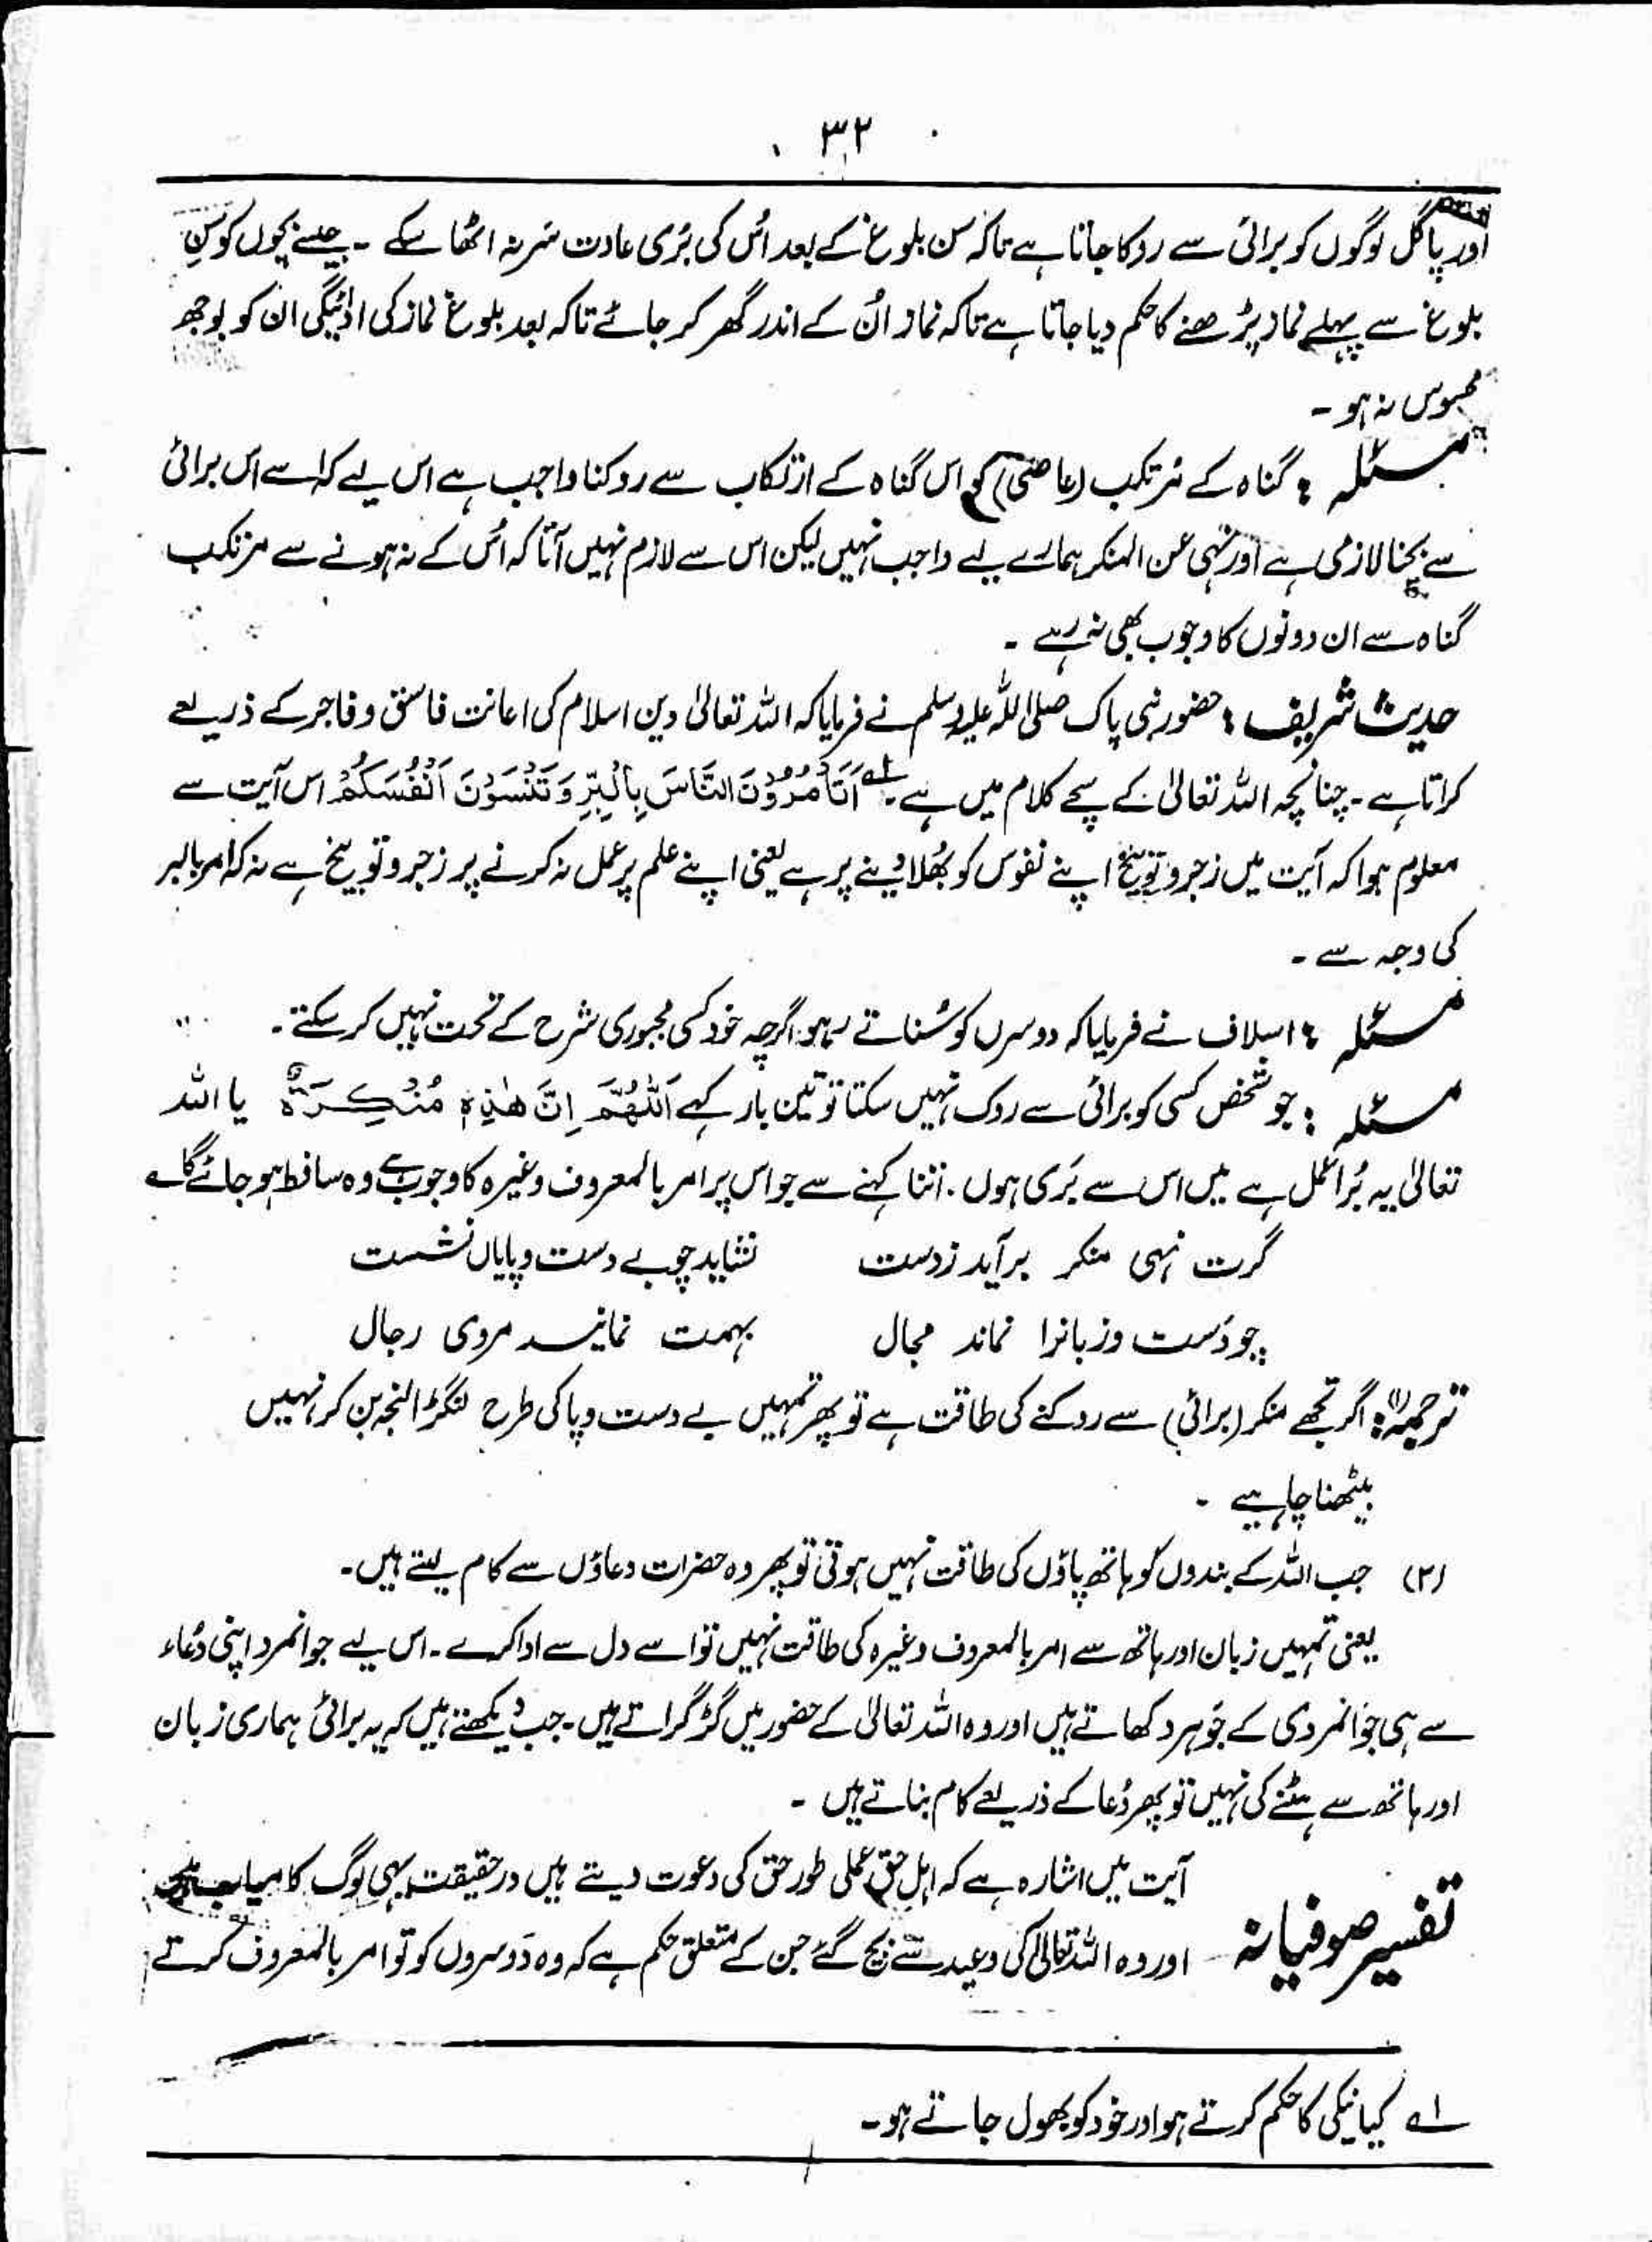 ۳۲
اور پاگل لوگوں کو برائی سے روکا جاتا ہے تاکہ سن بلوغ کے بعد اُس کی بُری عادت سَر نہ اٹھا سکے ۔ جیسے بچوں کو سنِ
بلوغ سے پہلے نماز پڑھنے کا حکم دیا جاتا ہے تاکہ نماز اُن کے اندر گھر کر جائے تاکہ بعد بلوغ نماز کی ادائیگی ان کو بوجھ
محسوس نہ ہو ۔
مسئلہ : گناہ کے مُرتکب (عاصی) کو اس گناہ کے ارتکاب سے روکنا واجب ہے اس لیے کہ اسے اس برائی
سے بچنا لازمی ہے اور نہی عن المنکر ہمارے لیے واجب نہیں لیکن اس سے لازم نہیں آتا کہ اُس کے نہ ہونے سے مرتکب
گناہ سے ان دونوں کا وجوب بھی نہ رہے ۔
حدیث شریف : حضور نبی پاک صلی اللہ علیہ وسلم نے فرمایا کہ اللہ تعالیٰ دین اسلام کی اعانت فاسق و فاجر کے ذریعے
کراتا ہے ۔ چنانچہ اللہ تعالیٰ کے سچے کلام میں ہے ۔ ؎۱ اَتَأْمُرُوْنَ النَّاسَ بِالْبِرِّ وَتَنْسَوْنَ اَنْفُسَكُمْ اس آیت سے
معلوم ہوا کہ آیت میں زجر و توبیخ اپنے نفوس کو بھُلا دینے پر ہے یعنی اپنے علم پر عمل نہ کرنے پر زجر و توبیخ ہے نہ کہ امر بالبر
کی وجہ سے ۔
مسئلہ : اسلاف نے فرمایا کہ دوسرں کو سُناتے رہو اگرچہ خود کسی مجبوری شرح کے تحت نہیں کر سکتے ۔
مسئلہ : جو شخص کسی کو برائی سے روک نہیں سکتا تو تین بار کہے اَللّٰهُمَّ اِنَّ هٰذِهٖ مُنْكِرَةٌ یا اللہ
تعالیٰ یہ بُرا عمل ہے میں اس سے بَری ہوں . اتنا کہنے سے جو اس پر امر بالمعروف وغیرہ کا وجوب ہے وہ ساقط ہو جائے گا ؎
گرت نہی منکر برآید زدست نشاید چو بے دست و پایاں نشست
چو دَست و زبانرا نماند مجال بہمت نمایند مردی رجال
ترجمہ (۱): اگر تجھے منکر (برائی) سے روکنے کی طاقت ہے تو پھر تمہیں بے دست و پا کی طرح لنگڑا لنجہ بن کر نہیں
بیٹھنا چاہیے ۔
(۲) جب اللہ کے بندوں کو ہاتھ پاؤں کی طاقت نہیں ہوتی تو پھر وہ حضرات دعاؤں سے کام لیتے ہیں ۔
یعنی تمہیں زبان اور ہاتھ سے امر بالمعروف وغیرہ کی طاقت نہیں تو اسے دل سے ادا کرے ۔ اس لیے جوانمرد اپنی دُعاء
سے ہی جوانمردی کے جَوہر دکھاتے ہیں اور وہ اللہ تعالیٰ کے حضور میں گڑگڑاتے ہیں ۔ جب دیکھتے ہیں کہ یہ برائی ہماری زبان
اور ہاتھ سے ہٹنے کی نہیں تو پھر دُعا کے ذریعے کام بناتے ہیں ۔
آیت میں اشارہ ہے کہ اہل حق عملی طور حق کی دعوت دیتے ہیں درحقیقت یہی لوگ کامیاب ہیں
تفسیر صوفیانہ اور وہ اللہ تعالیٰ کی وعید سے بچ گئے جن کے متعلق حکم ہے کہ وہ دَوسروں کو تو امر بالمعروف کرتے
؎۱ کیا نیکی کا حکم کرتے ہو اور خود کو بھول جاتے ہو ۔